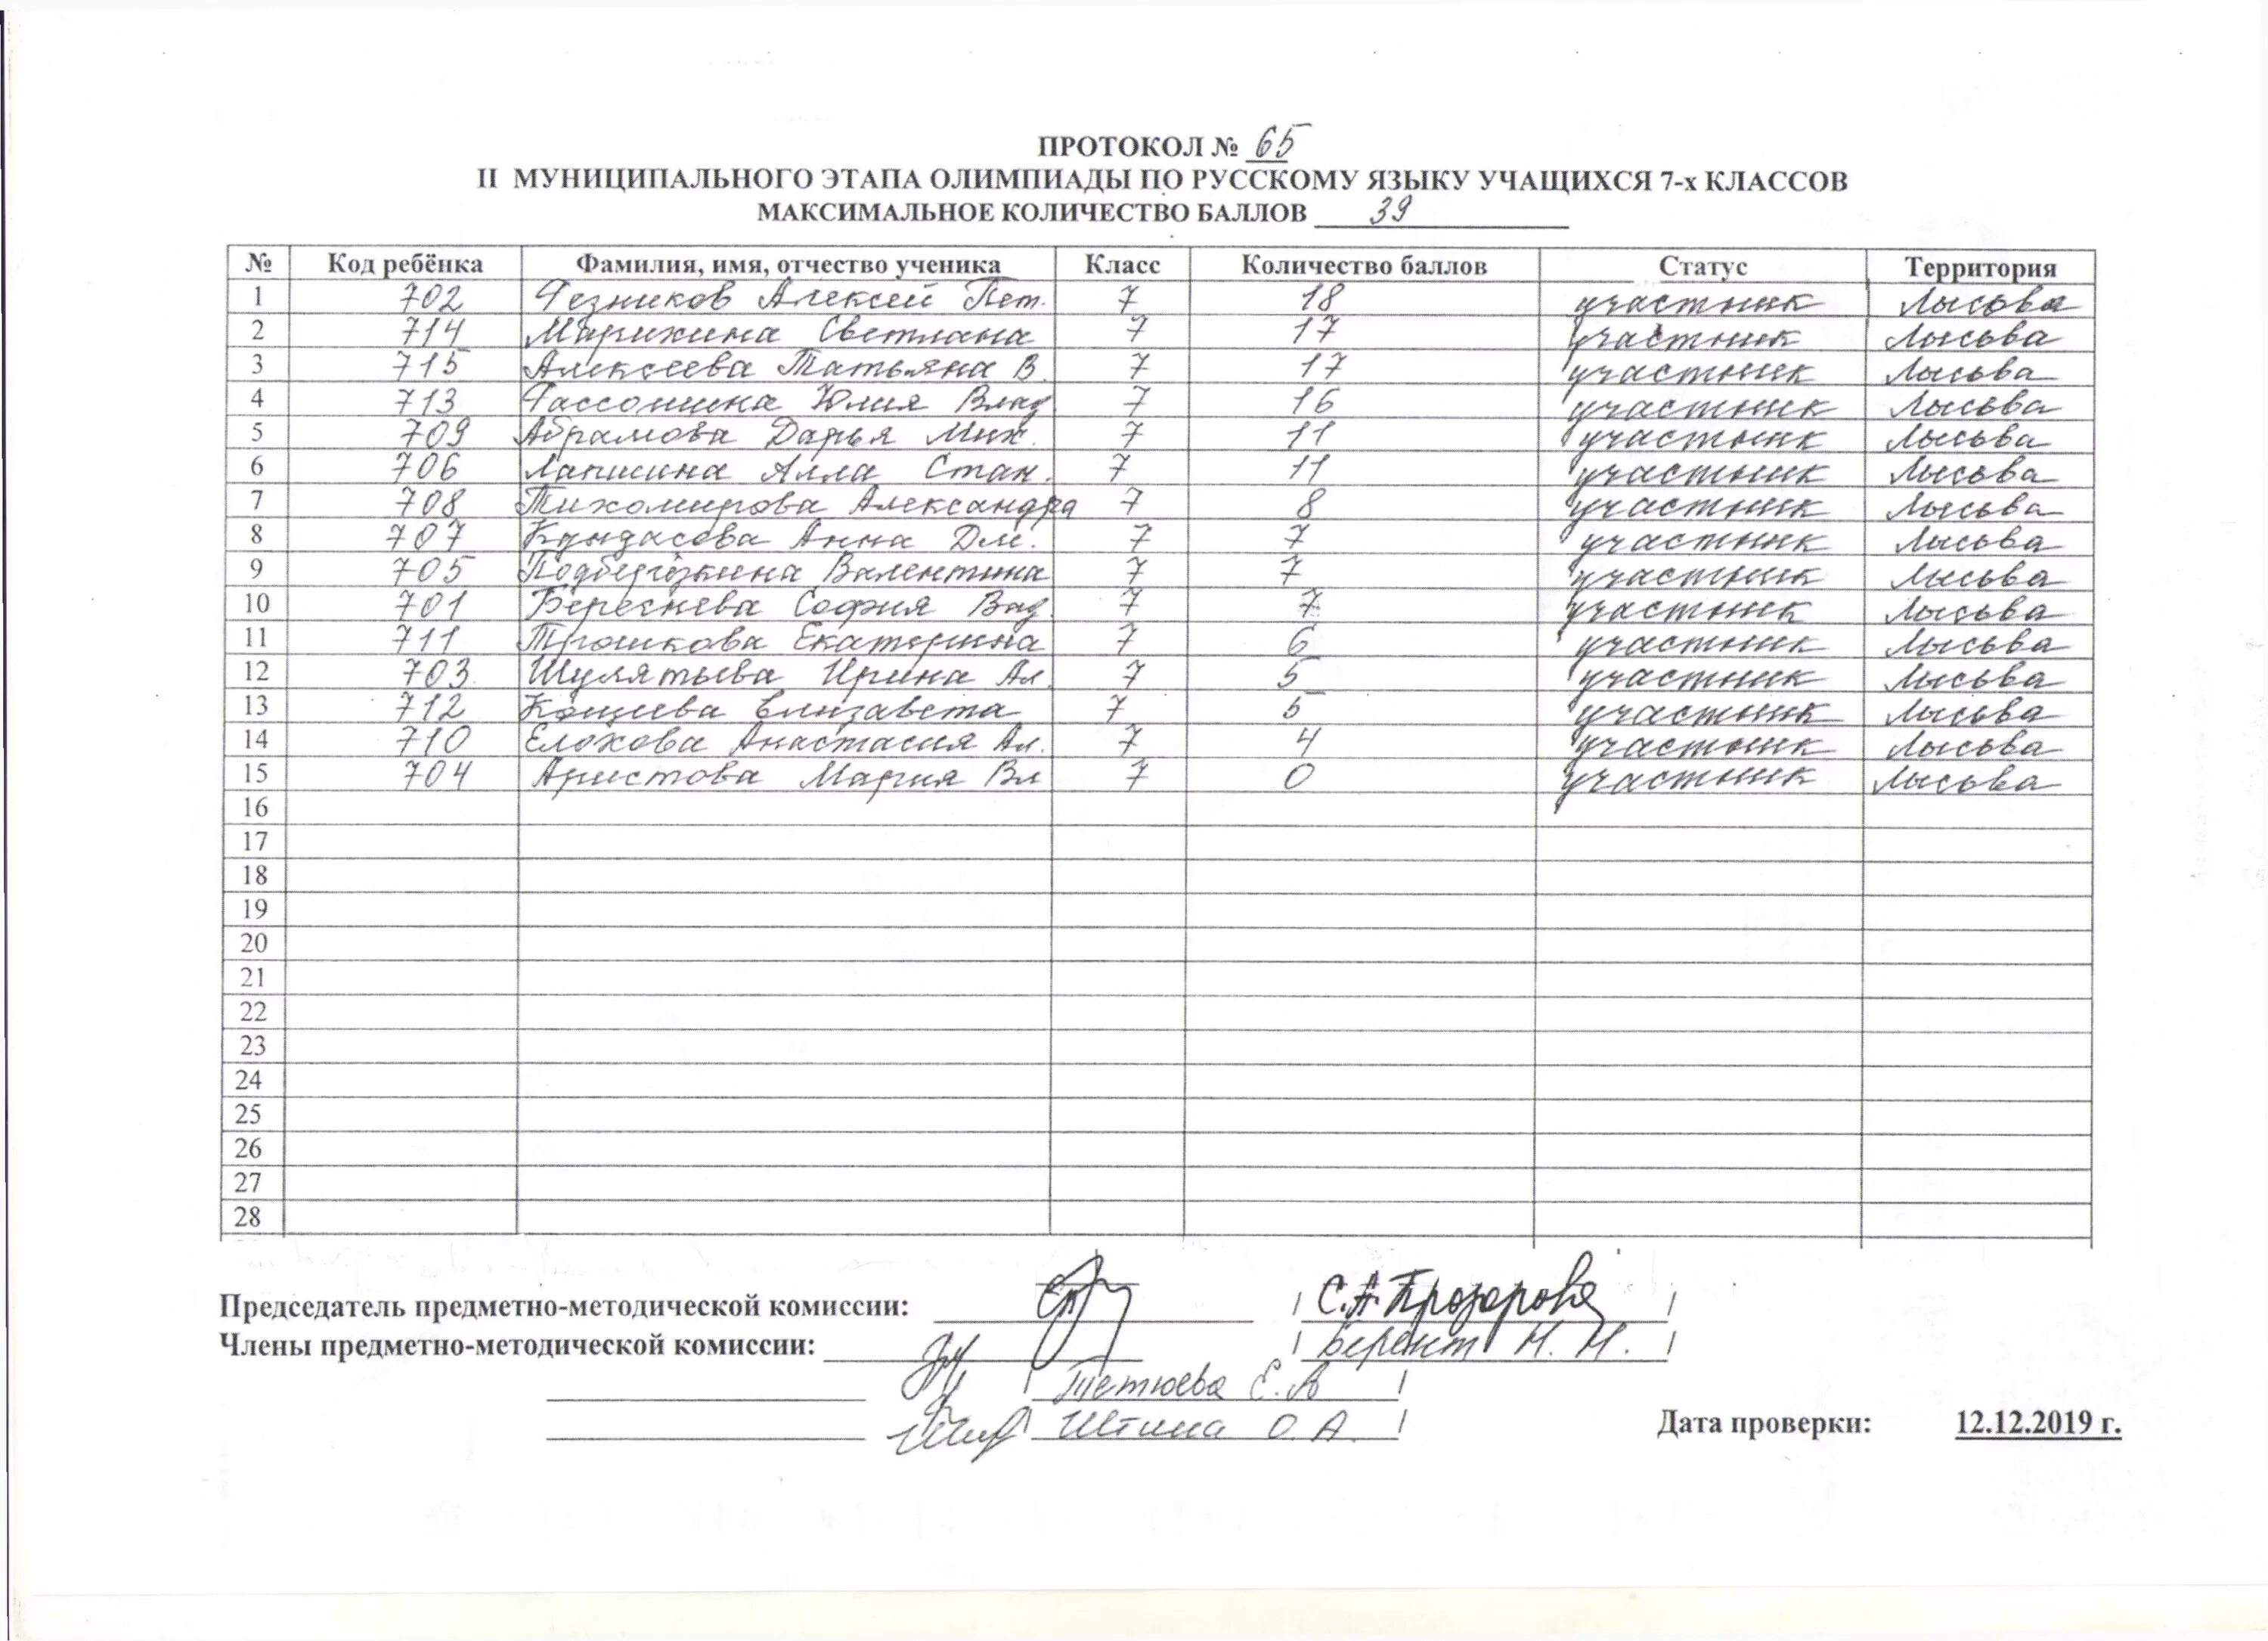 ПРОТОКОЛ № 65
II МУНИЦИПАЛЬНОГО ЭТАПА ОЛИМПИАДЫ ПО РУССКОМУ ЯЗЫКУ УЧАЩИХСЯ 7-х КЛАССОВ
МАКСИМАЛЬНОЕ КОЛИЧЕСТВО БАЛЛОВ 39
№ Код ребёнка Фамилия, имя, отчество ученика Класс Количество баллов Статус Территория
1 702 Резников Алексей Пет. 7 18 участник Лысьва
2 714 Мирихина Светлана 7 17 участник Лысьва
3 715 Алексеева Татьяна В. 7 17 участник Лысьва
4 713 Юлия Влад. 7 16 участник Лысьва
5 709 Абрамова Дарья Мих. 7 11 участник Лысьва
6 706 Лапшина Алла Стан. 7 11 участник Лысьва
7 708 Тихомирова Александра 7 8 участник Лысьва
8 707 Кундасова Анна Дм. 7 7 участник Лысьва
9 705 Подберёзкина Валентина 7 7 участник Лысьва
10 701 Береснева София Вяд. 7 7 участник Лысьва
11 711 Трошкова Екатерина 7 6 участник Лысьва
12 703 Шулятьева Ирина Ал. 7 5 участник Лысьва
13 712 Кощеева Елизавета 7 5 участник Лысьва
14 710 Елохова Анастасия Ал. 7 4 участник Лысьва
15 704 Аристова Мария Вл 7 0 участник Лысьва
16
17
18
19
20
21
22
23
24
25
26
27
28
Председатель предметно-методической комиссии: / С.А. Прозорова /
Члены предметно-методической комиссии: / Берент Н. Н. /
/ Тетюева Е. А /
/ Штина О. А. /
Дата проверки: 12.12.2019 г.